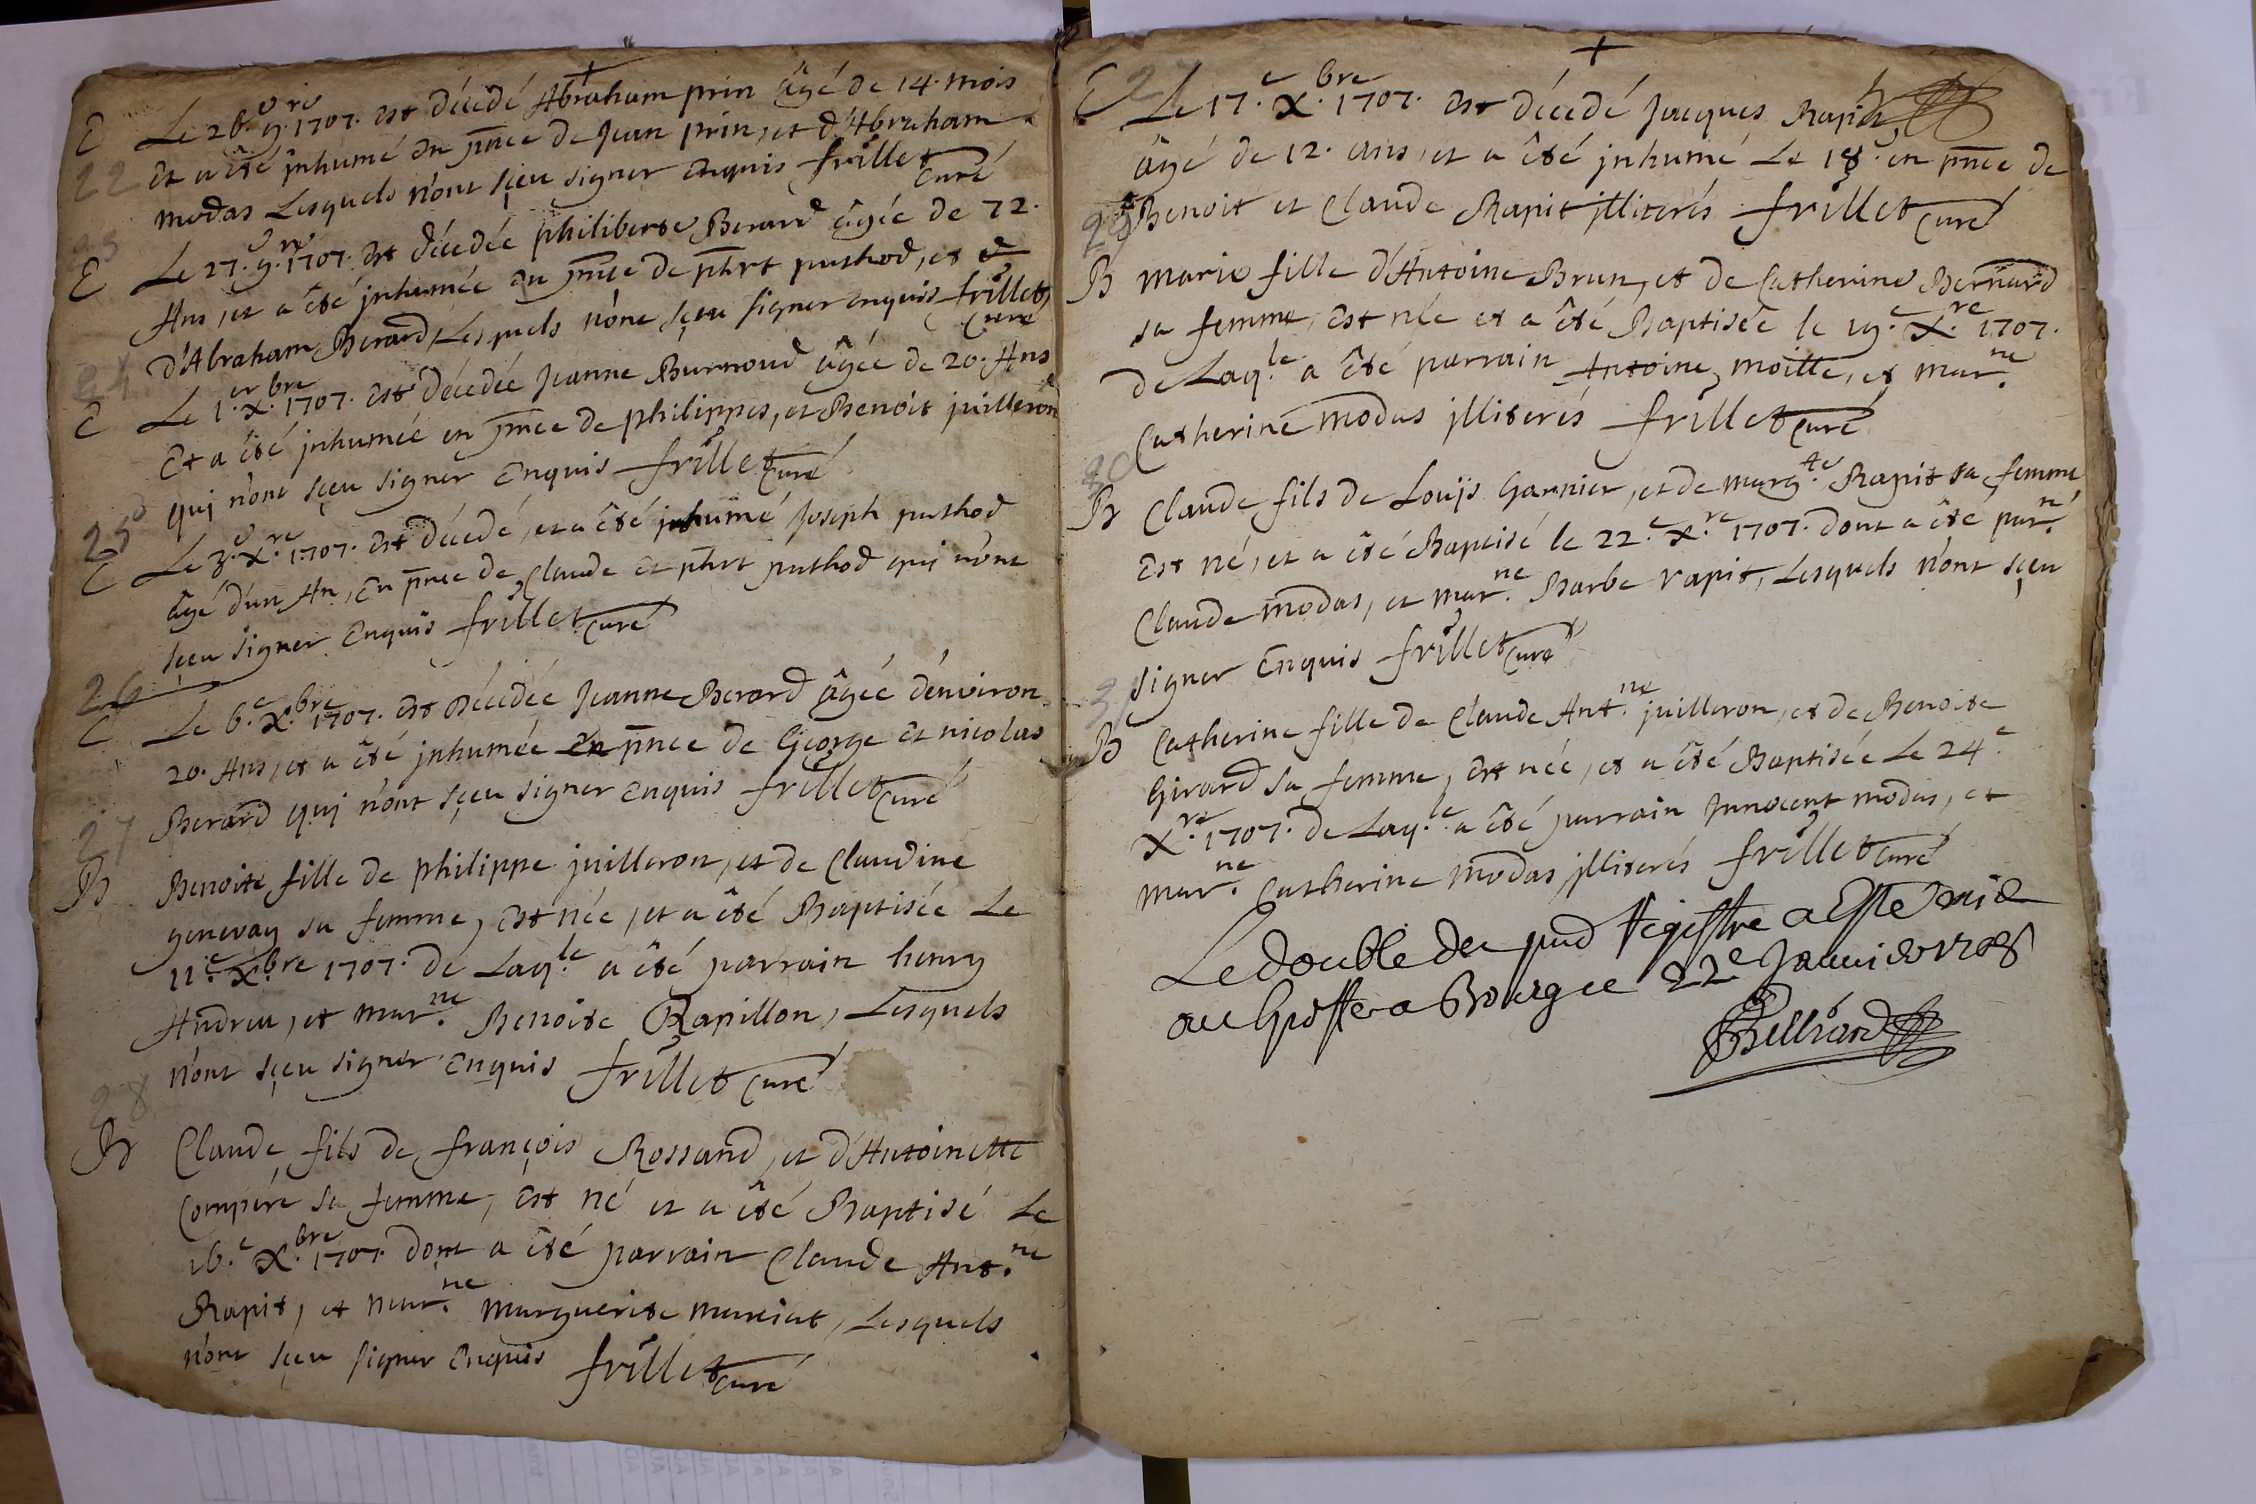 E Le 26.e 9.re 1707. est décedé Abraham prin âgé de 14. mois
22
Et a été jnhumé en pñce de Jean prin, et d'Abraham
modas Lesquels n'ont sçeu signer enquis frillet
Curé
23
E Le 27.e 9.re 1707. est décedée philiberte Berard âgée de 72.
Ans, et a été jnhumée en pñce de phrt puthod, et
d'Abraham Berard, Lesquels n'ont sçeu signer enquis frillet
Curé
24
E Le 1.er x.bre 1707. est décedée Jeanne Burnoud âgée de 20. Ans
Et a été jnhumée en pñce de philippes, et Benoit juilleron
qui n'ont sçeu signer Enquis frillet Curé
25
E Le 3.e x.re 1707. est décedé, et a été jnhumé Joseph puthod
âgé d'un An, En pñce de Claude et phrt puthod qui n'ont
sçeu signer Enquis frillet Curé
26
E Le 6.e x.bre 1707. est décedée Jeanne Berard âgée d'environ
20. Ans, et a été jnhumée En pñce de George et nicolas
Berard qui n'ont sçeu signer enquis frillet Curé
27
B Benoite fille de philippe juilleron, et de Claudine
genevay sa femme, est née, et a été Baptisée Le
11.e x.bre 1707. de Laq.le a été parrain henry
Andreu, et mar.ne Benoite Rapillon, Lesquels
n'ont sçeu signer Enquis frillet Curé
28
B Claude fils de françois Rossand, et d'Antoinette
Compére sa femme, est né et a été Baptisé Le
16.e x.bre 1707. dont a été parrain Claude Ant.ne
Rapit, et mar.ne marguerite marciat, Lesquels
n'ont sçeu signer Enquis frillet Curé
E Le 17.e x.bre 1707. est décedé Jacques Rapit
âgé de 12. ans, et a été jnhumé Le 18.e en pñce de
Benoit et Claude Rapit jlliterés frillet Curé
29
B marie fille d'Antoine Brun, et de Catherine Bernard
sa femme, est née et a été Baptisée le 19.e x.re 1707.
de Laq.le a été parrain Antoine moitte, et mar.ne
Catherine modas jlliterés frillet Curé
30
B Claude fils de Louÿs Garnier, et de marg.te Rapit sa femme
Est né, et a été Baptisé le 22.e x.re 1707. dont a été par.n
Claude modas, et mar.ne Barbe rapit, Lesquels n'ont sçeu
signer Enquis frillet Curé
31
B Catherine fille de Claude Ant.ne juilleron, et de Benoite
Girard sa femme, est née, et a été Baptisée Le 24.e
x.re 1707. de Laq.le a été parrain Jnnocent modas, et
mar.ne Catherine modas jlliterés frillet Curé
Le double du pnt Registre a Esté mis
au Greffe a Bourg ce 22e Janvier 1708